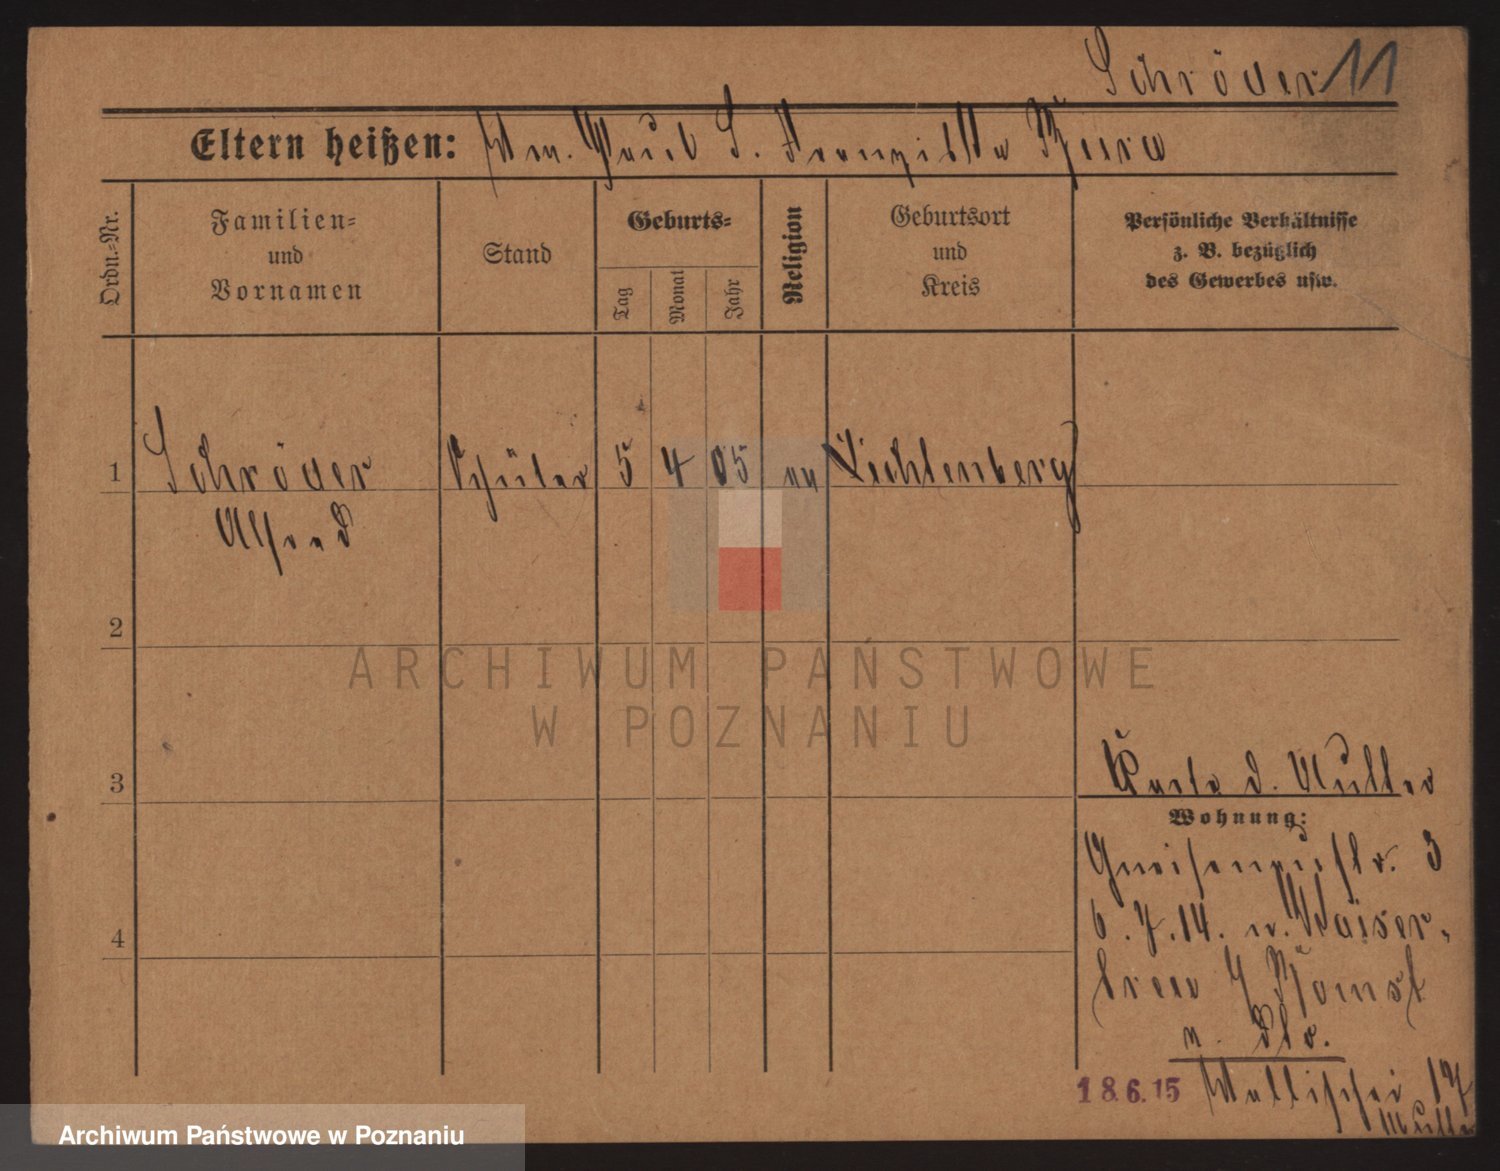 Schröder 11
Eltern heißen: Paul S. Franziska
Ordn.=Nr.
Familien=
und
Vornamen
Stand
Geburts=
Tag
Monat
Jahr
Religion
Geburtsort
und
Kreis
Persönliche Verhältnisse
z. B. bezüglich
des Gewerbes usw.
1 Schröder Schüler 5 4 05 Lichtenberg
Alfred
2
3
4
Karte d. Mutter
Wohnung:
Gneisenaustr. 3
6.7.14. n. Kaiser-
treu Bomst
n. dtr.
18.6.15 Wallischei 17
Mutter
ARCHIWUM PAŃSTWOWE
W POZNANIU
Archiwum Państwowe w Poznaniu